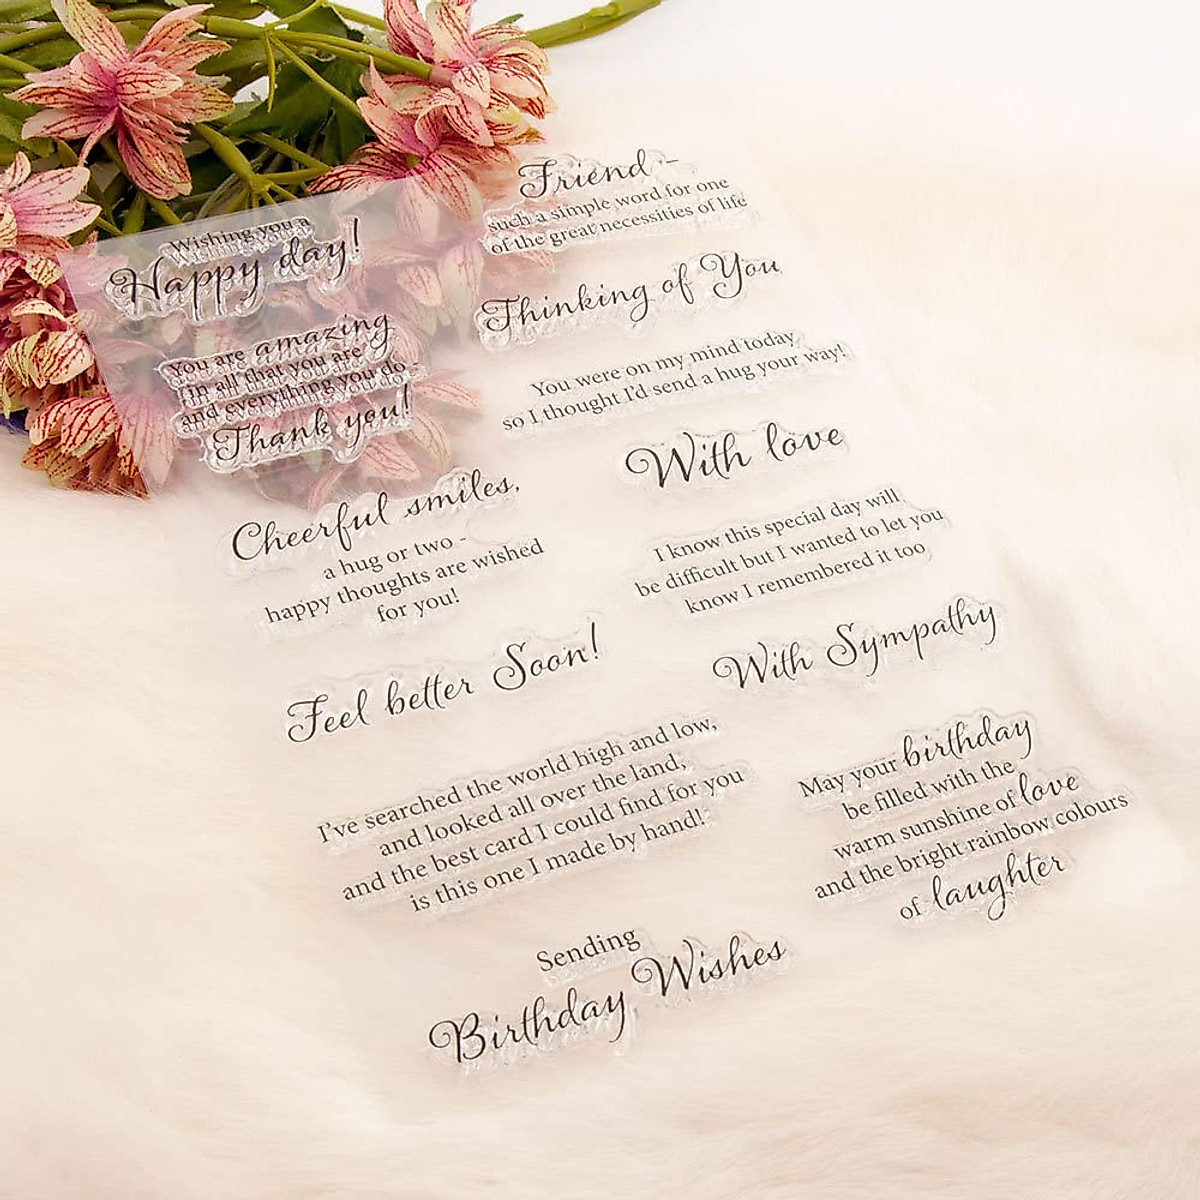 Wishing you a
Happy day!
You are amazing
in all that you are
and everything you do -
Thank you!
Cheerful smiles,
a hug or two -
happy thoughts are wished
for you!
Feel better Soon!
I've searched the world high and low,
and looked all over the land,
and the best card I could find for you
is this one I made by hand!
Sending
Birthday Wishes
Friend -
such a simple word for one
of the great necessities of life
Thinking of You
You were on my mind today
so I thought I'd send a hug your way!
With love
I know this special day will
be difficult but I wanted to let you
know I remembered it too
With Sympathy
May your birthday
be filled with the
warm sunshine of love
and the bright rainbow colours
of laughter